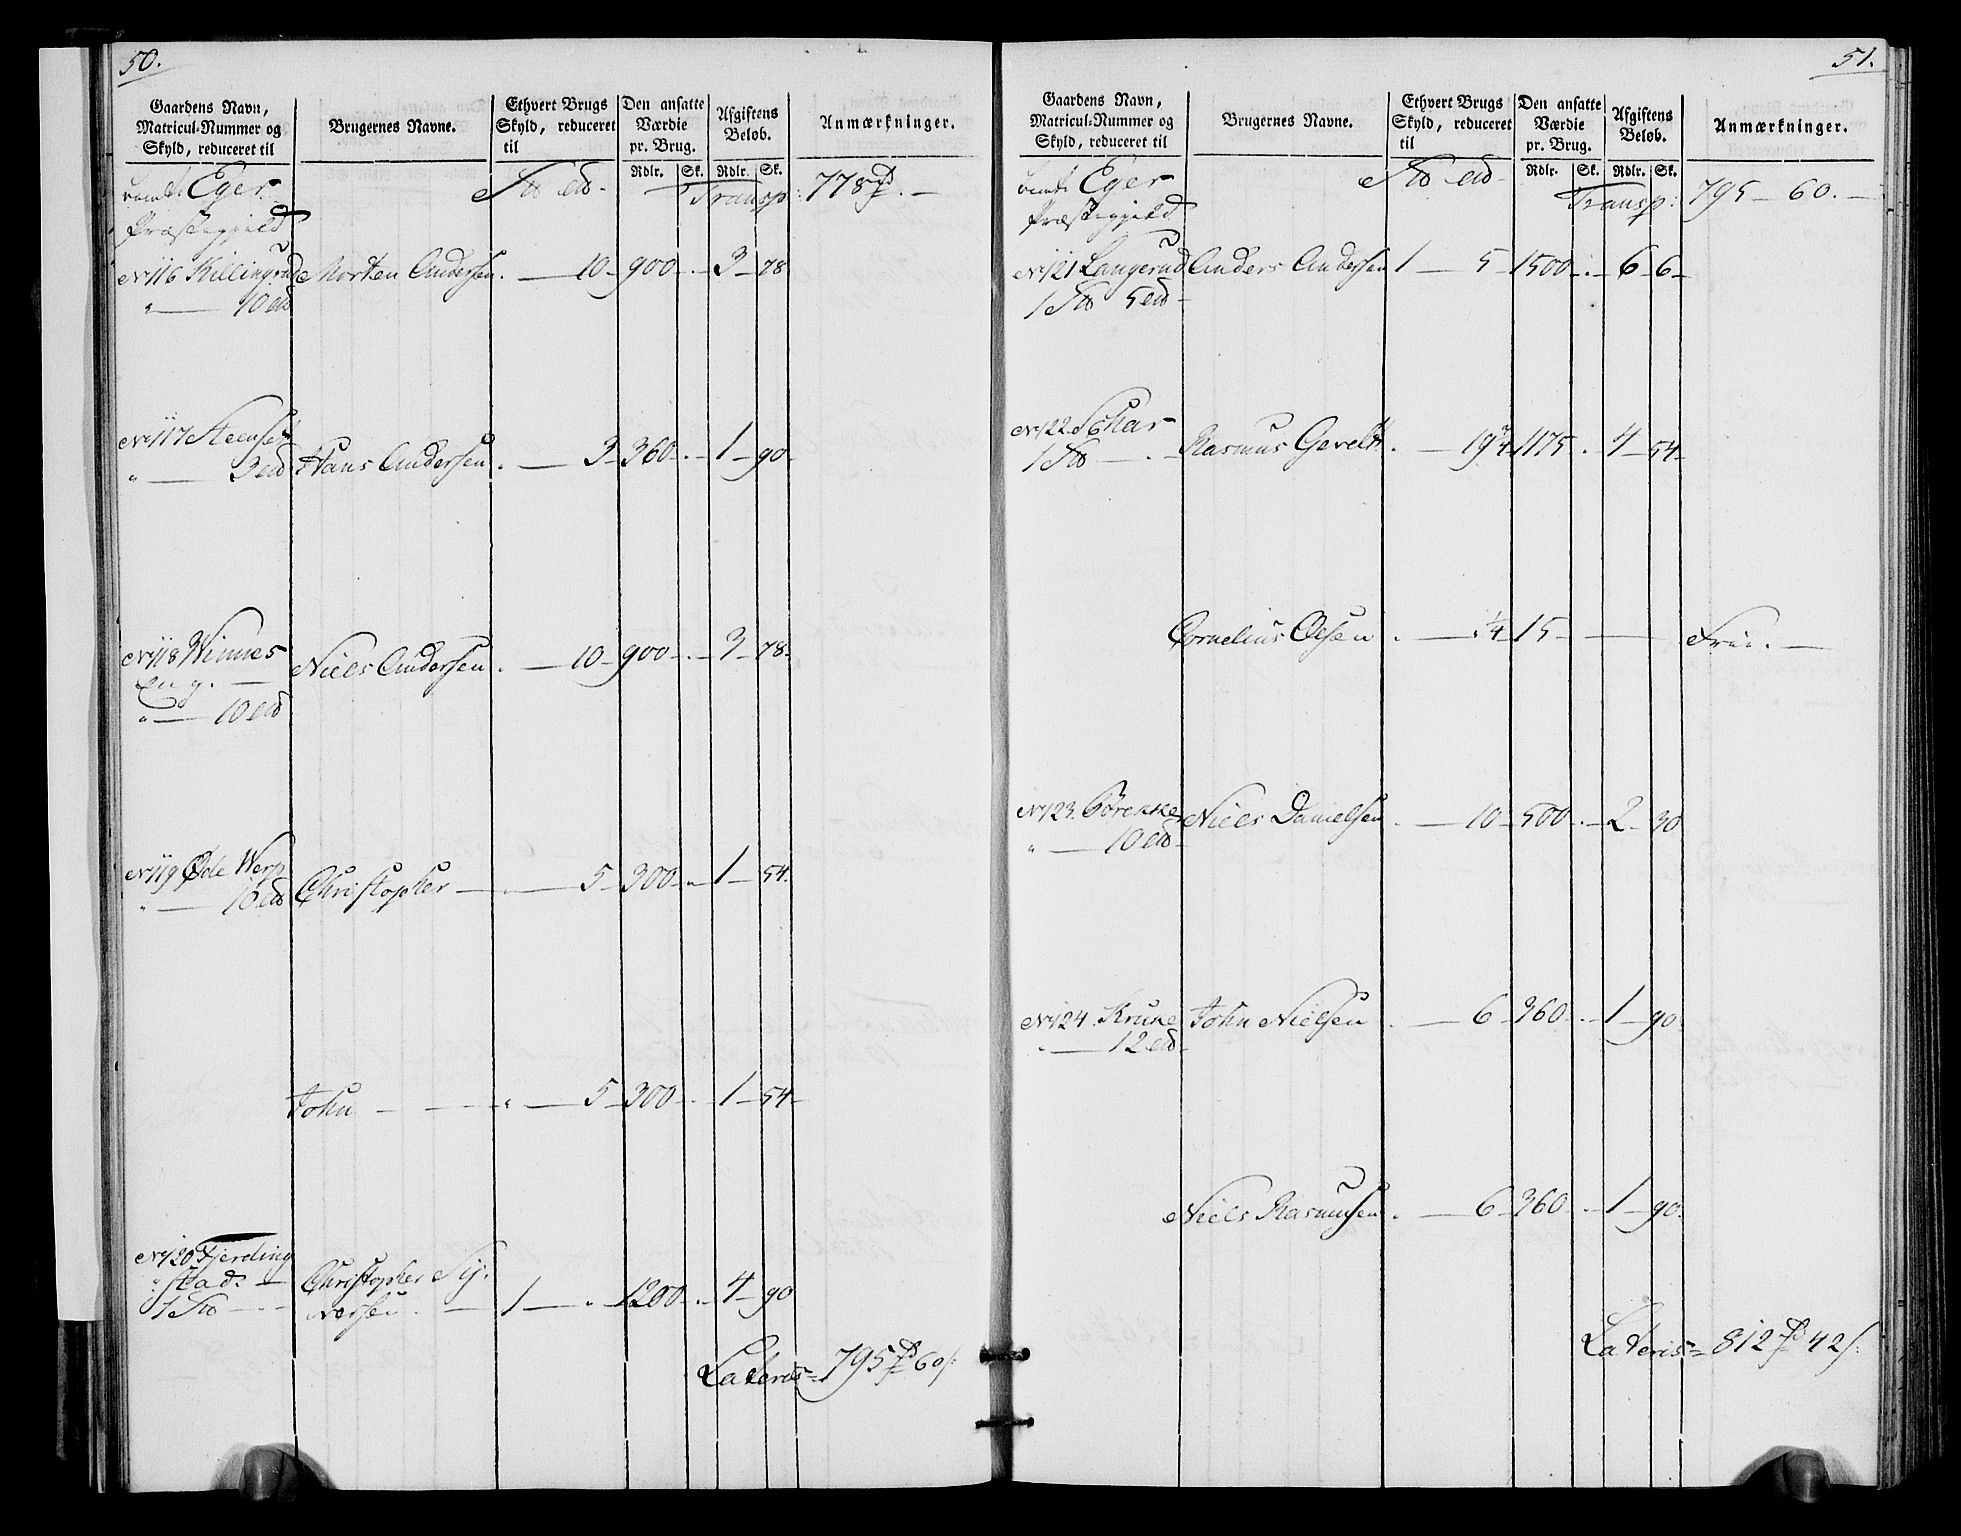 50.
Gaardens Navn, Matricul-Nummer og Skyld, reduceret til
Brugernes Navne.
Ethvert Brugs Skyld, reduceret til
Den ansatte Værdie pr. Brug.
Afgiftens Beløb.
Anmærkninger.
Rdlr. Sk. Rdlr. Sk.
Eger Transp: 778
Præstegjeld
No 116 Killingrud Morten Andersen. — 10 — 900 — . — 3 — 78
" — 10
No 117 Hans Andersen . — 3 — 360 — . — 1 — 90 —
" — 3
No 118 Winnes Niels Andersen . — 10 — 900 — . — 3 — 78 —
Eng. —
" — 10
No 119 Øde Werp Christopher — " — 5 — 300 — " — 1 — 54.
" — 10
John — — " — 5 — 300 — . — 1 — 54 —
No 120 Fjerding Christopher
stad. —
1 — 1 — " — 1200 — . — 4 — 90
Lateris = 795 60
51.
Gaardens Navn, Matricul-Nummer og Skyld, reduceret til
Brugernes Navne.
Ethvert Brugs Skyld, reduceret til
Den ansatte Værdie pr. Brug.
Afgiftens Beløb.
Anmærkninger.
Rdlr. Sk. Rdlr. Sk.
Eger Transp: 795 — 60. —
Præstegjeld
No 121 Langerud Anders Andersen 1 — 5 — 1500 — . — 6 — 6 —
1 5
No 122 Rasmus . — 19 3/4 1175 . — 4 — 54 —
1
Cornelius Olsen . — 1/4 15 — — Frie. —
No 123. Niels Danielsen . — 10 — 500 — . — 2 — 30
" — 10
No 124. John Nielsen . — 6 — 360 — . — 1 — 90.
" — 12
Niels Rasmusen . — 6 — 360 — . — 1 — 90.
Lateris = 812 42